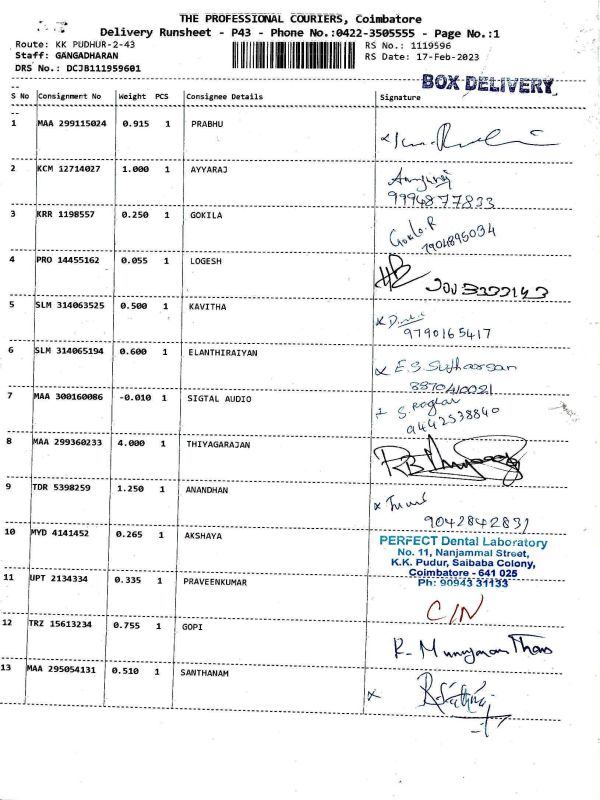 THE PROFESSIONAL COURIERS, Coimbatore
Delivery Runsheet - P43 - Phone No.:0422-3505555 - Page No.:1
Route: KK PUDHUR-2-43 RS No.: 1119596
Staff: GANGADHARAN RS Date: 17-Feb-2023
DRS No.: DCJB111959601
BOX DELIVERY
S No Consignment No Weight PCS Consignee Details Signature
1 MAA 299115024 0.915 1 PRABHU
2 KCM 12714027 1.000 1 AYYARAJ
9994877833
3 KRR 1198557 0.250 1 GOKILA Gokila.R
7904895034
4 PRO 14455162 0.055 1 LOGESH
5 SLM 314063525 0.500 1 KAVITHA
9790165417
6 SLM 314065194 0.600 1 ELANTHIRAIYAN x E.S Sutharsan
8870410021
7 MAA 300160086 -0.010 1 SIGTAL AUDIO
9442538840
8 MAA 299360233 4.000 1 THIYAGARAJAN
9 TDR 5398259 1.250 1 ANANDHAN
9042842831
10 MYD 4141452 0.265 1 AKSHAYA
PERFECT Dental Laboratory
No. 11, Nanjammal Street,
K.K. Pudur, Saibaba Colony,
Coimbatore - 641 025
Ph: 90943 31133
11 UPT 2134334 0.335 1 PRAVEENKUMAR C/N
12 TRZ 15613234 0.755 1 GOPI
13 MAA 295054131 0.510 1 SANTHANAM